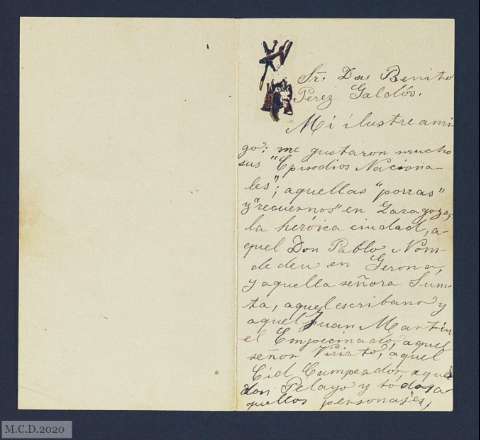 Sr. Don Benito
Pérez Galdós.
Mi ilustre ami
go: me gustaron mucho
sus "Episodios Naciona-
les"; aquellas "porras"
y "recuernos" en Zaragoza,
la heróica ciudad, a-
quel Don Pablo Nom-
de deu en Gerona,
y aquella señora Sumta,
ta, aquel escribano y
aquel Juan Martin
el Empecinado, aquel
señor Viriato, aquel
Cid Campeador, aquel
don Pelayo y todos a
quellos personajes,
M.C.D.2020